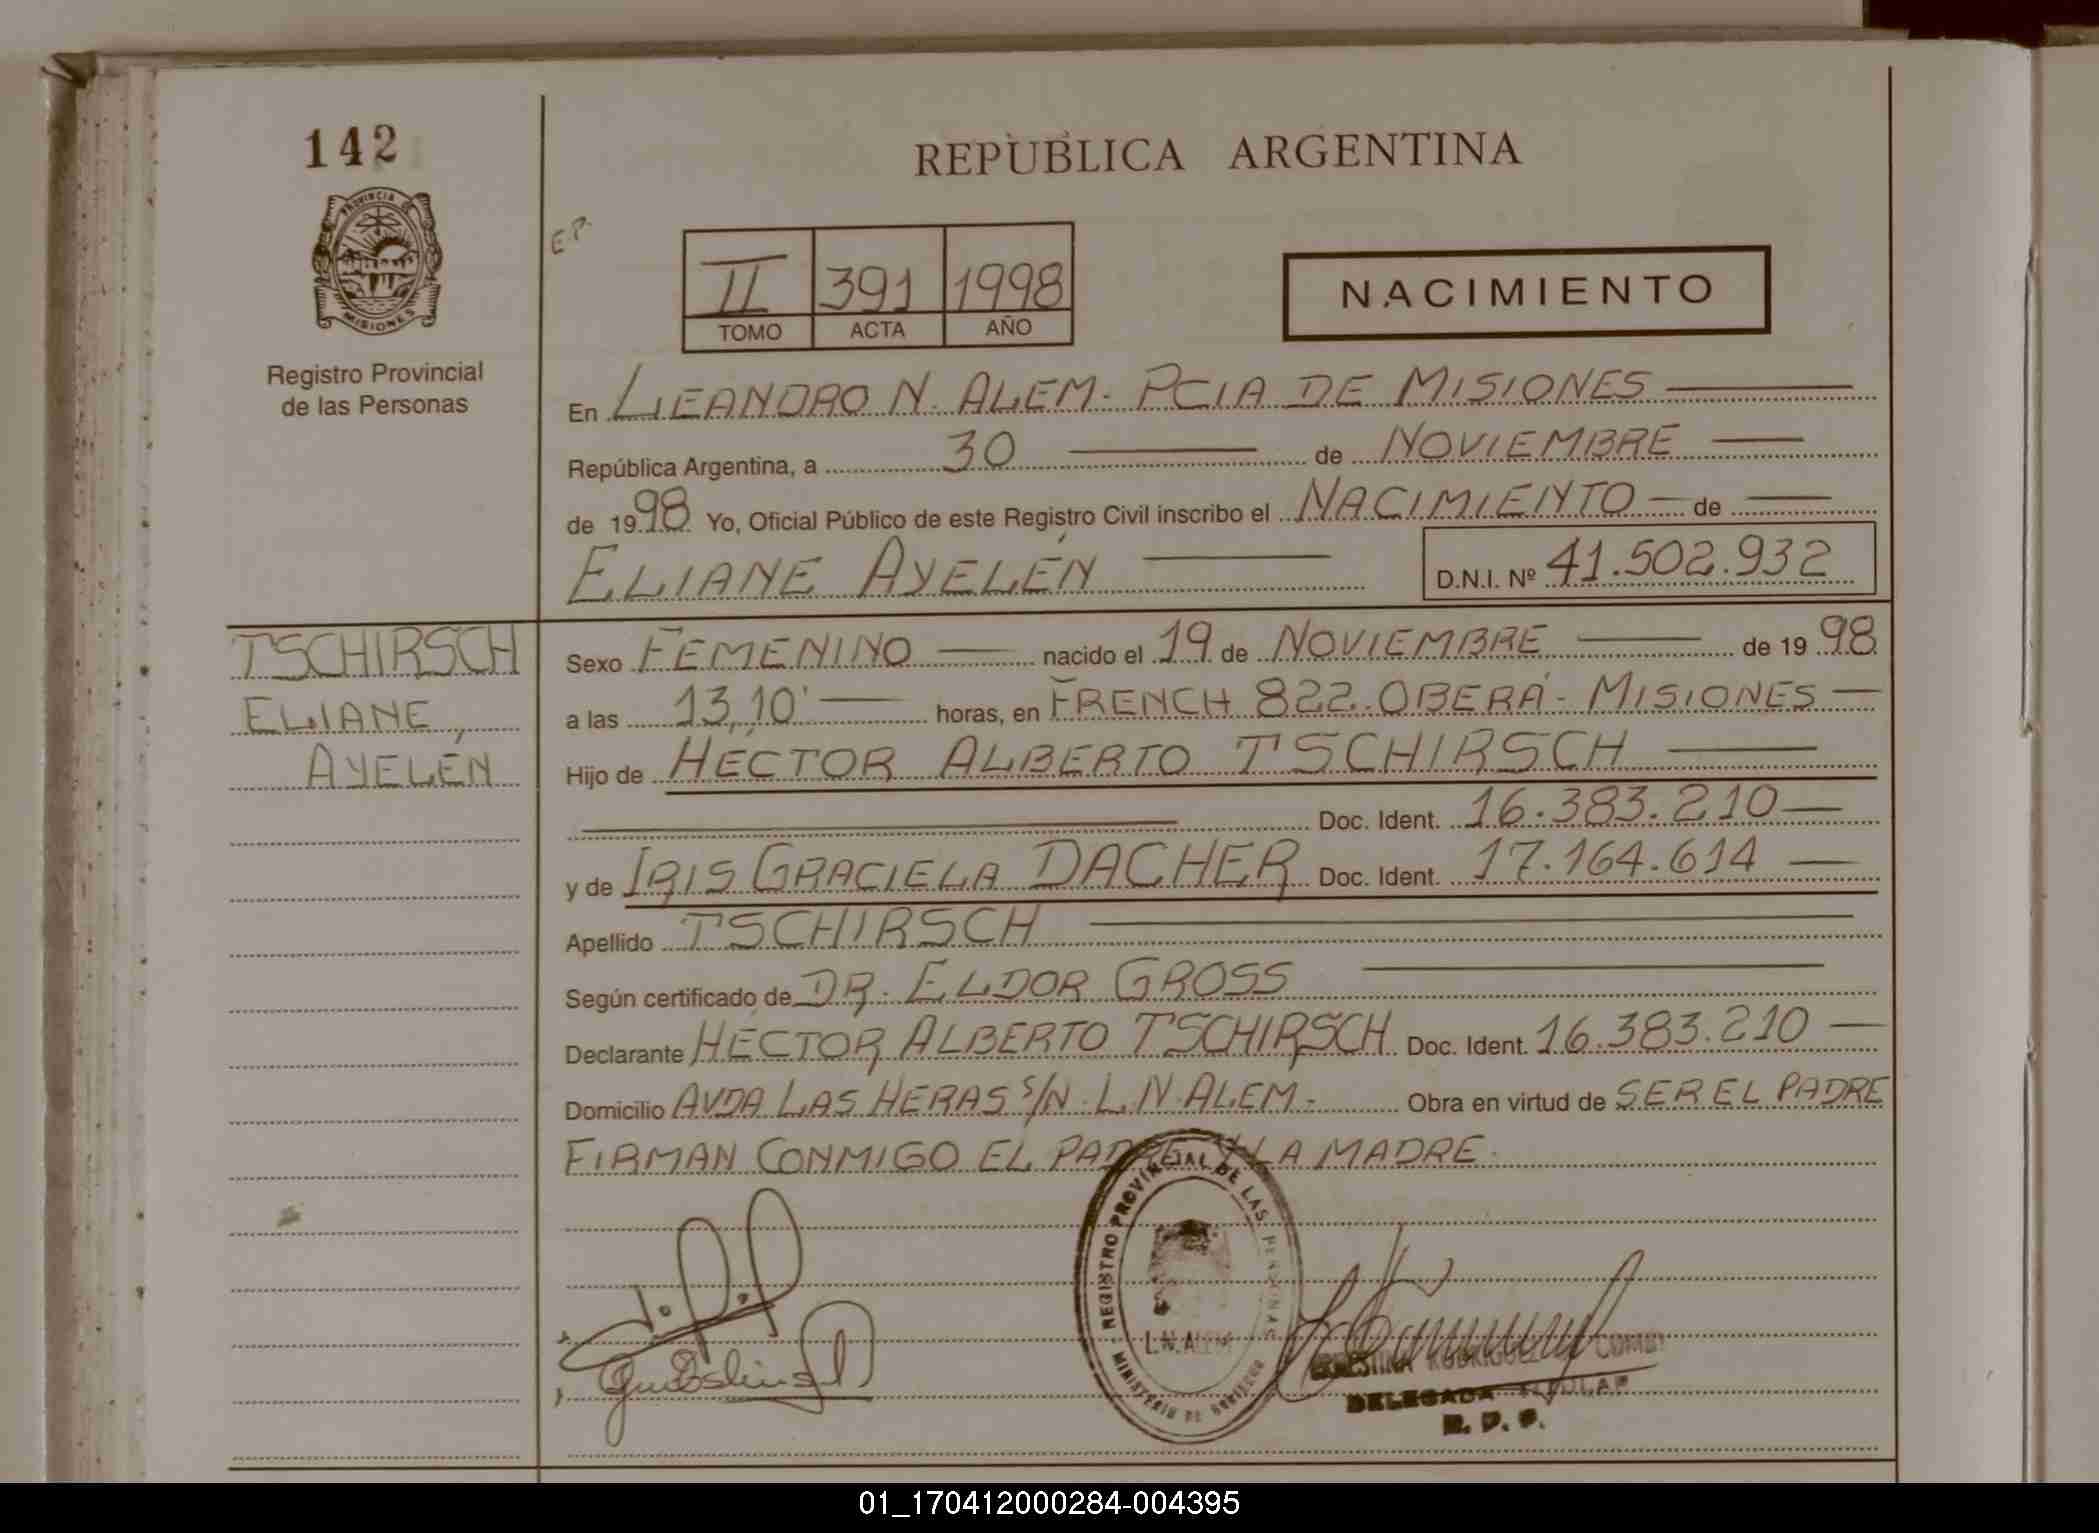 142
PROVINCIA DE
MISIONES
Registro Provincial
de las Personas
REPUBLICA ARGENTINA
E.P.
II 391 1998
TOMO ACTA AÑO
NACIMIENTO
En LEANDRO N. ALEM. PCIA DE MISIONES
República Argentina, a 30 de NOVIEMBRE
de 1998 Yo, Oficial Público de este Registro Civil inscribo el NACIMIENTO de
ELIANE AYELÉN D.N.I. Nº 41.502.932
TSCHIRSCH
ELIANE
AYELÉN
Sexo FEMENINO nacido el 19 de NOVIEMBRE de 1998
a las 13,10' horas, en FRENCH 822. OBERÁ - MISIONES
Hijo de HÉCTOR ALBERTO TSCHIRSCH
Doc. Ident. 16.383.210
y de IRIS GRACIELA DACHER Doc. Ident. 17.164.614
Apellido TSCHIRSCH
Según certificado de DR. ELDOR GROSS
Declarante HÉCTOR ALBERTO TSCHIRSCH Doc. Ident. 16.383.210
Domicilio AVDA LAS HERAS S/N. L.N. ALEM. Obra en virtud de SER EL PADRE
FIRMAN CONMIGO EL PADRE Y LA MADRE.
REGISTRO PROVINCIAL DE LAS PERSONAS
L.N. ALEM
MINISTERIO DE GOBIERNO
ERNESTINA RODRIGUEZ
DELEGADA TITULAR
R. P. P.
01_170412000284-004395